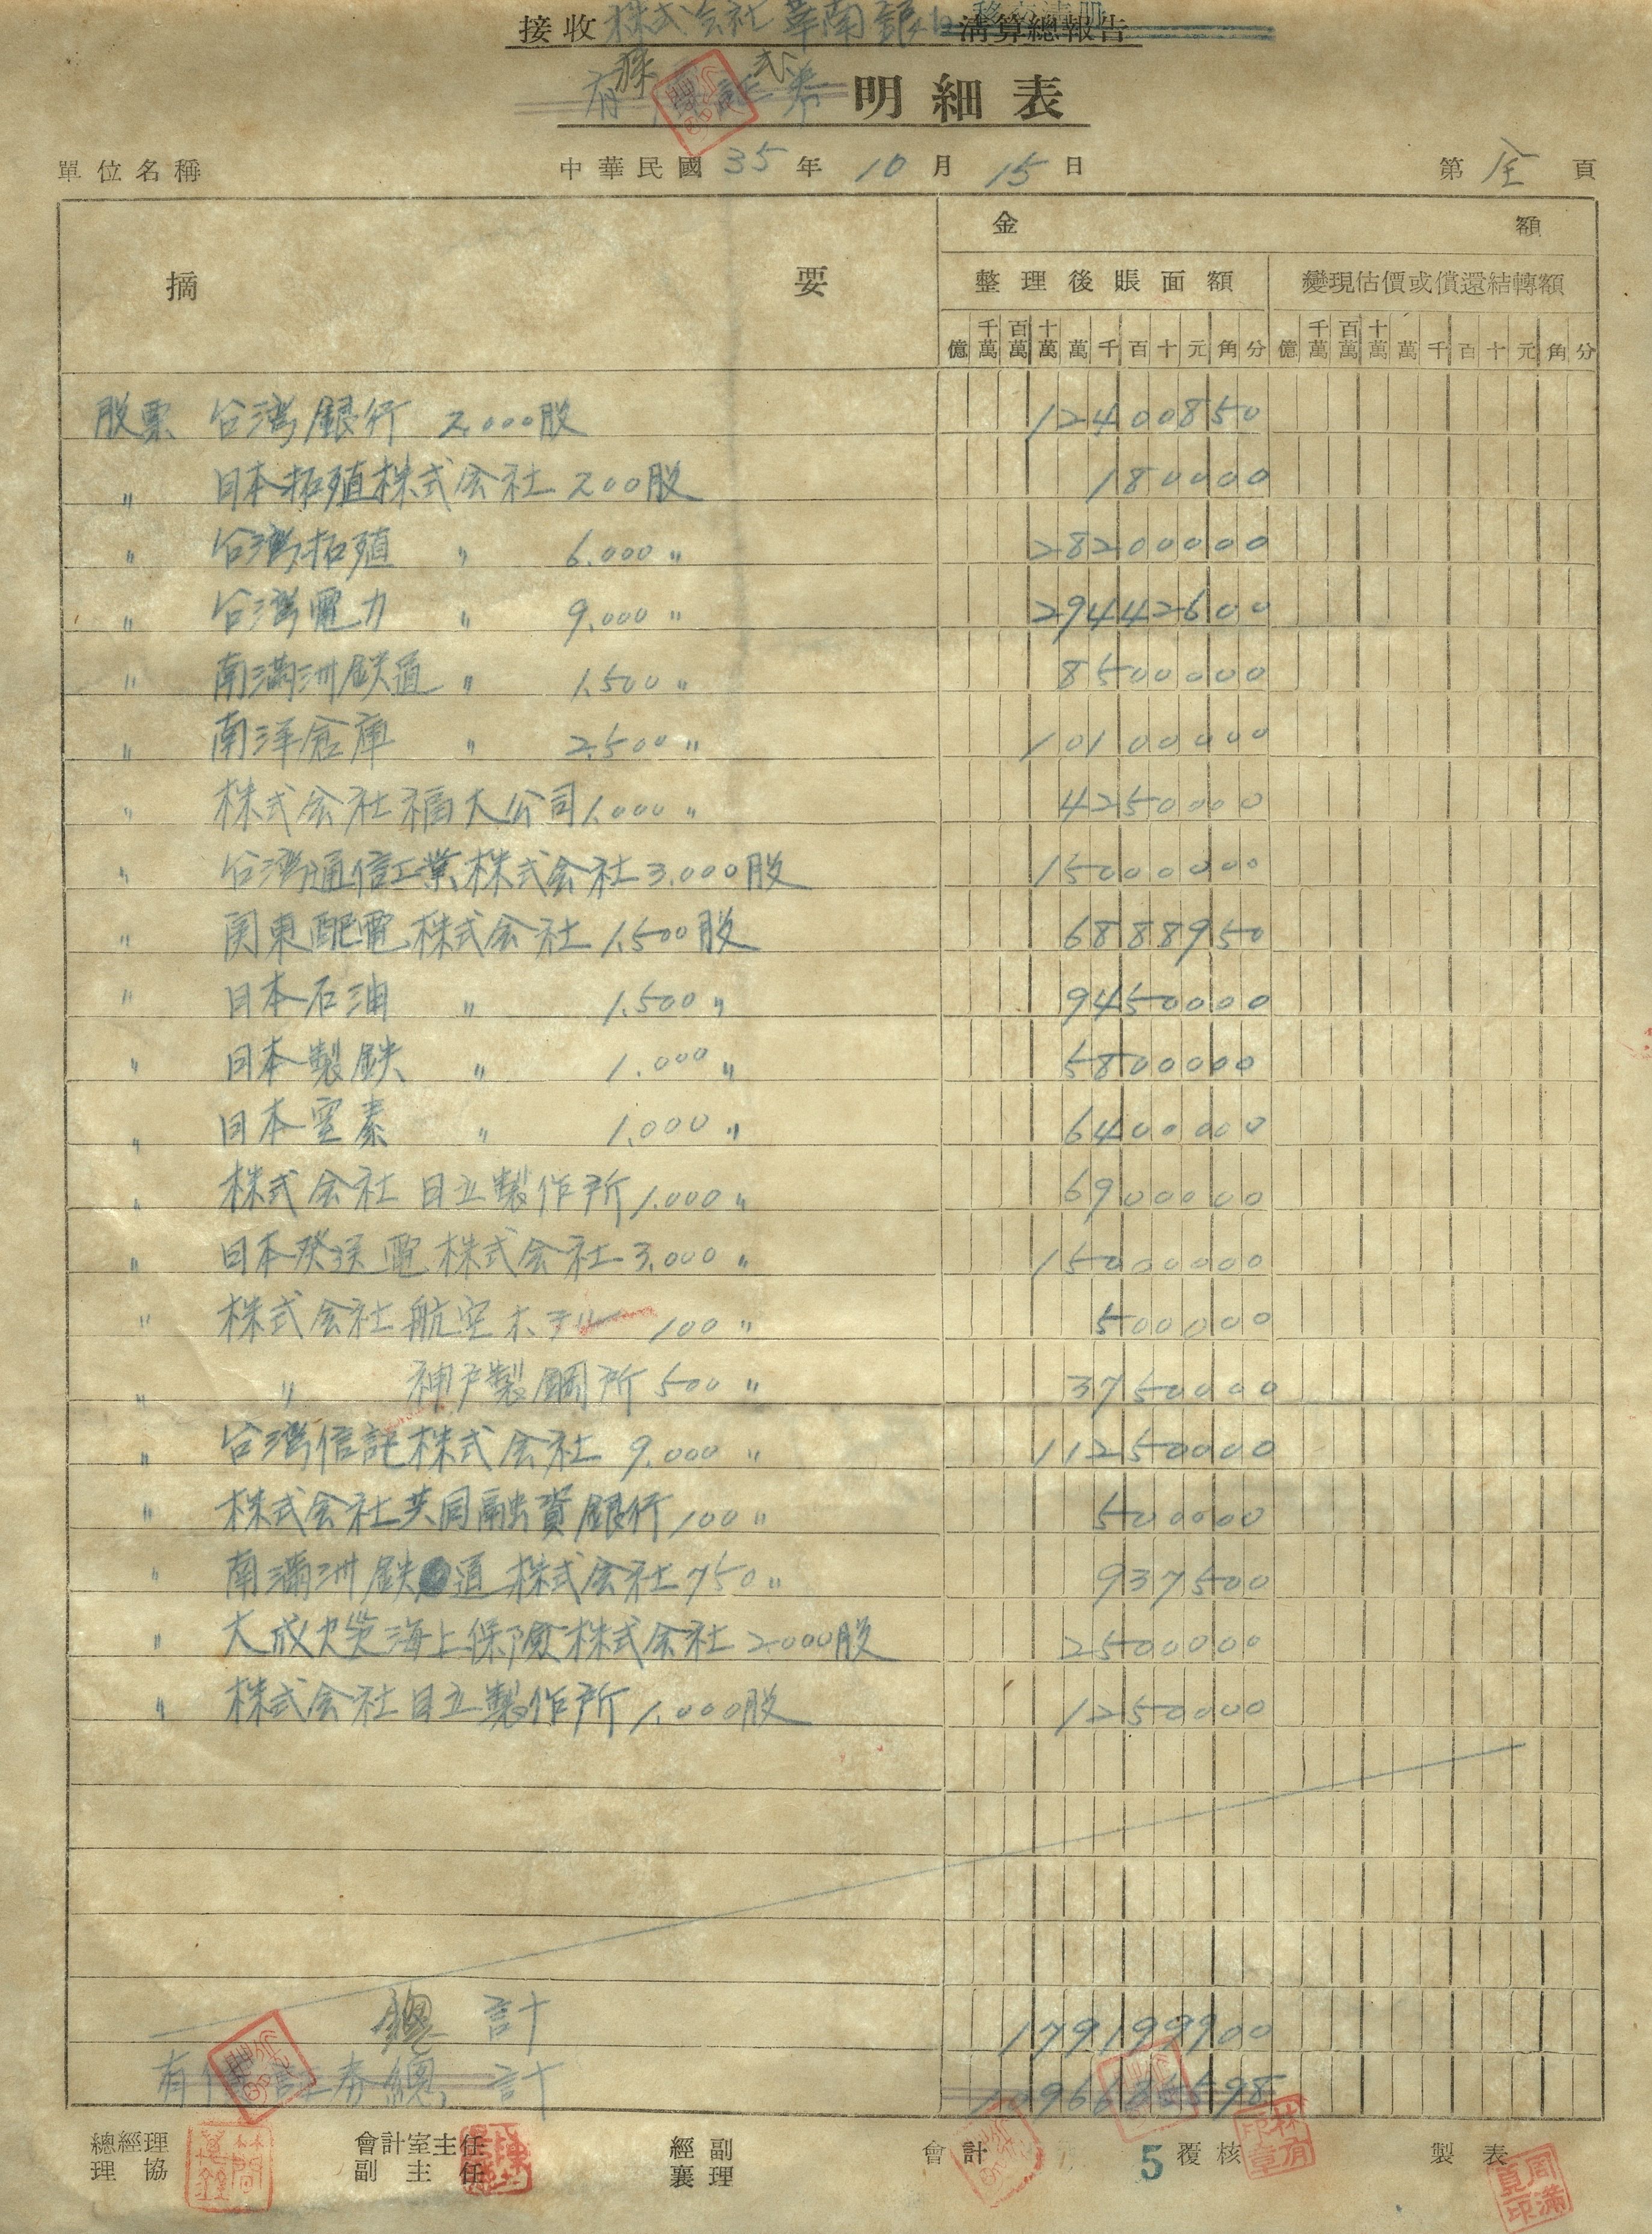 接收 株式会社華南銀行 清算總報告 移交清冊
有價証券 株式 明細表
單位名稱 中華民國35年10月15日 第全頁
摘要 金額
整理後賬面額 變現估價或償還結轉額
億 千萬 百萬 十萬 萬 千 百 十 元 角 分 億 千萬 百萬 十萬 萬 千 百 十 元 角 分
股票 台湾銀行 2,000股 12400850
〃 日本拓殖株式会社 200股 180000
〃 台湾拓殖 〃 6,000〃 28200000
〃 台湾電力 〃 9,000〃 29442600
〃 南満洲鉄道 〃 1,500〃 8500000
〃 南洋倉庫 〃 2,500〃 10100000
〃 株式会社福大公司 1,000〃 4250000
〃 台湾通信工業株式会社 3,000股 15000000
〃 関東配電株式会社 1,500股 6888950
〃 日本石油 〃 1,500〃 9450000
〃 日本製鉄 〃 1,000〃 5800000
〃 日本窒素 〃 1,000〃 6400000
〃 株式会社日立製作所 1,000〃 6900000
〃 日本発送電株式会社 3,000〃 15000000
〃 株式会社航空ホテル 100〃 500000
〃 〃 神戸製鋼所 500〃 3750000
〃 台湾信託株式会社 9,000〃 11250000
〃 株式会社共同融資銀行 100〃 500000
〃 南満洲鉄道株式会社 750〃 937500
〃 大成火災海上保険株式会社 2,000股 2500000
〃 株式会社日立製作所 1,000股 1250000
總計 179199900
有價証券總計
總經理 協理 會計室主任 副主任 經副襄理 會計 5 覆核 製表
林有印章
周滿夏印